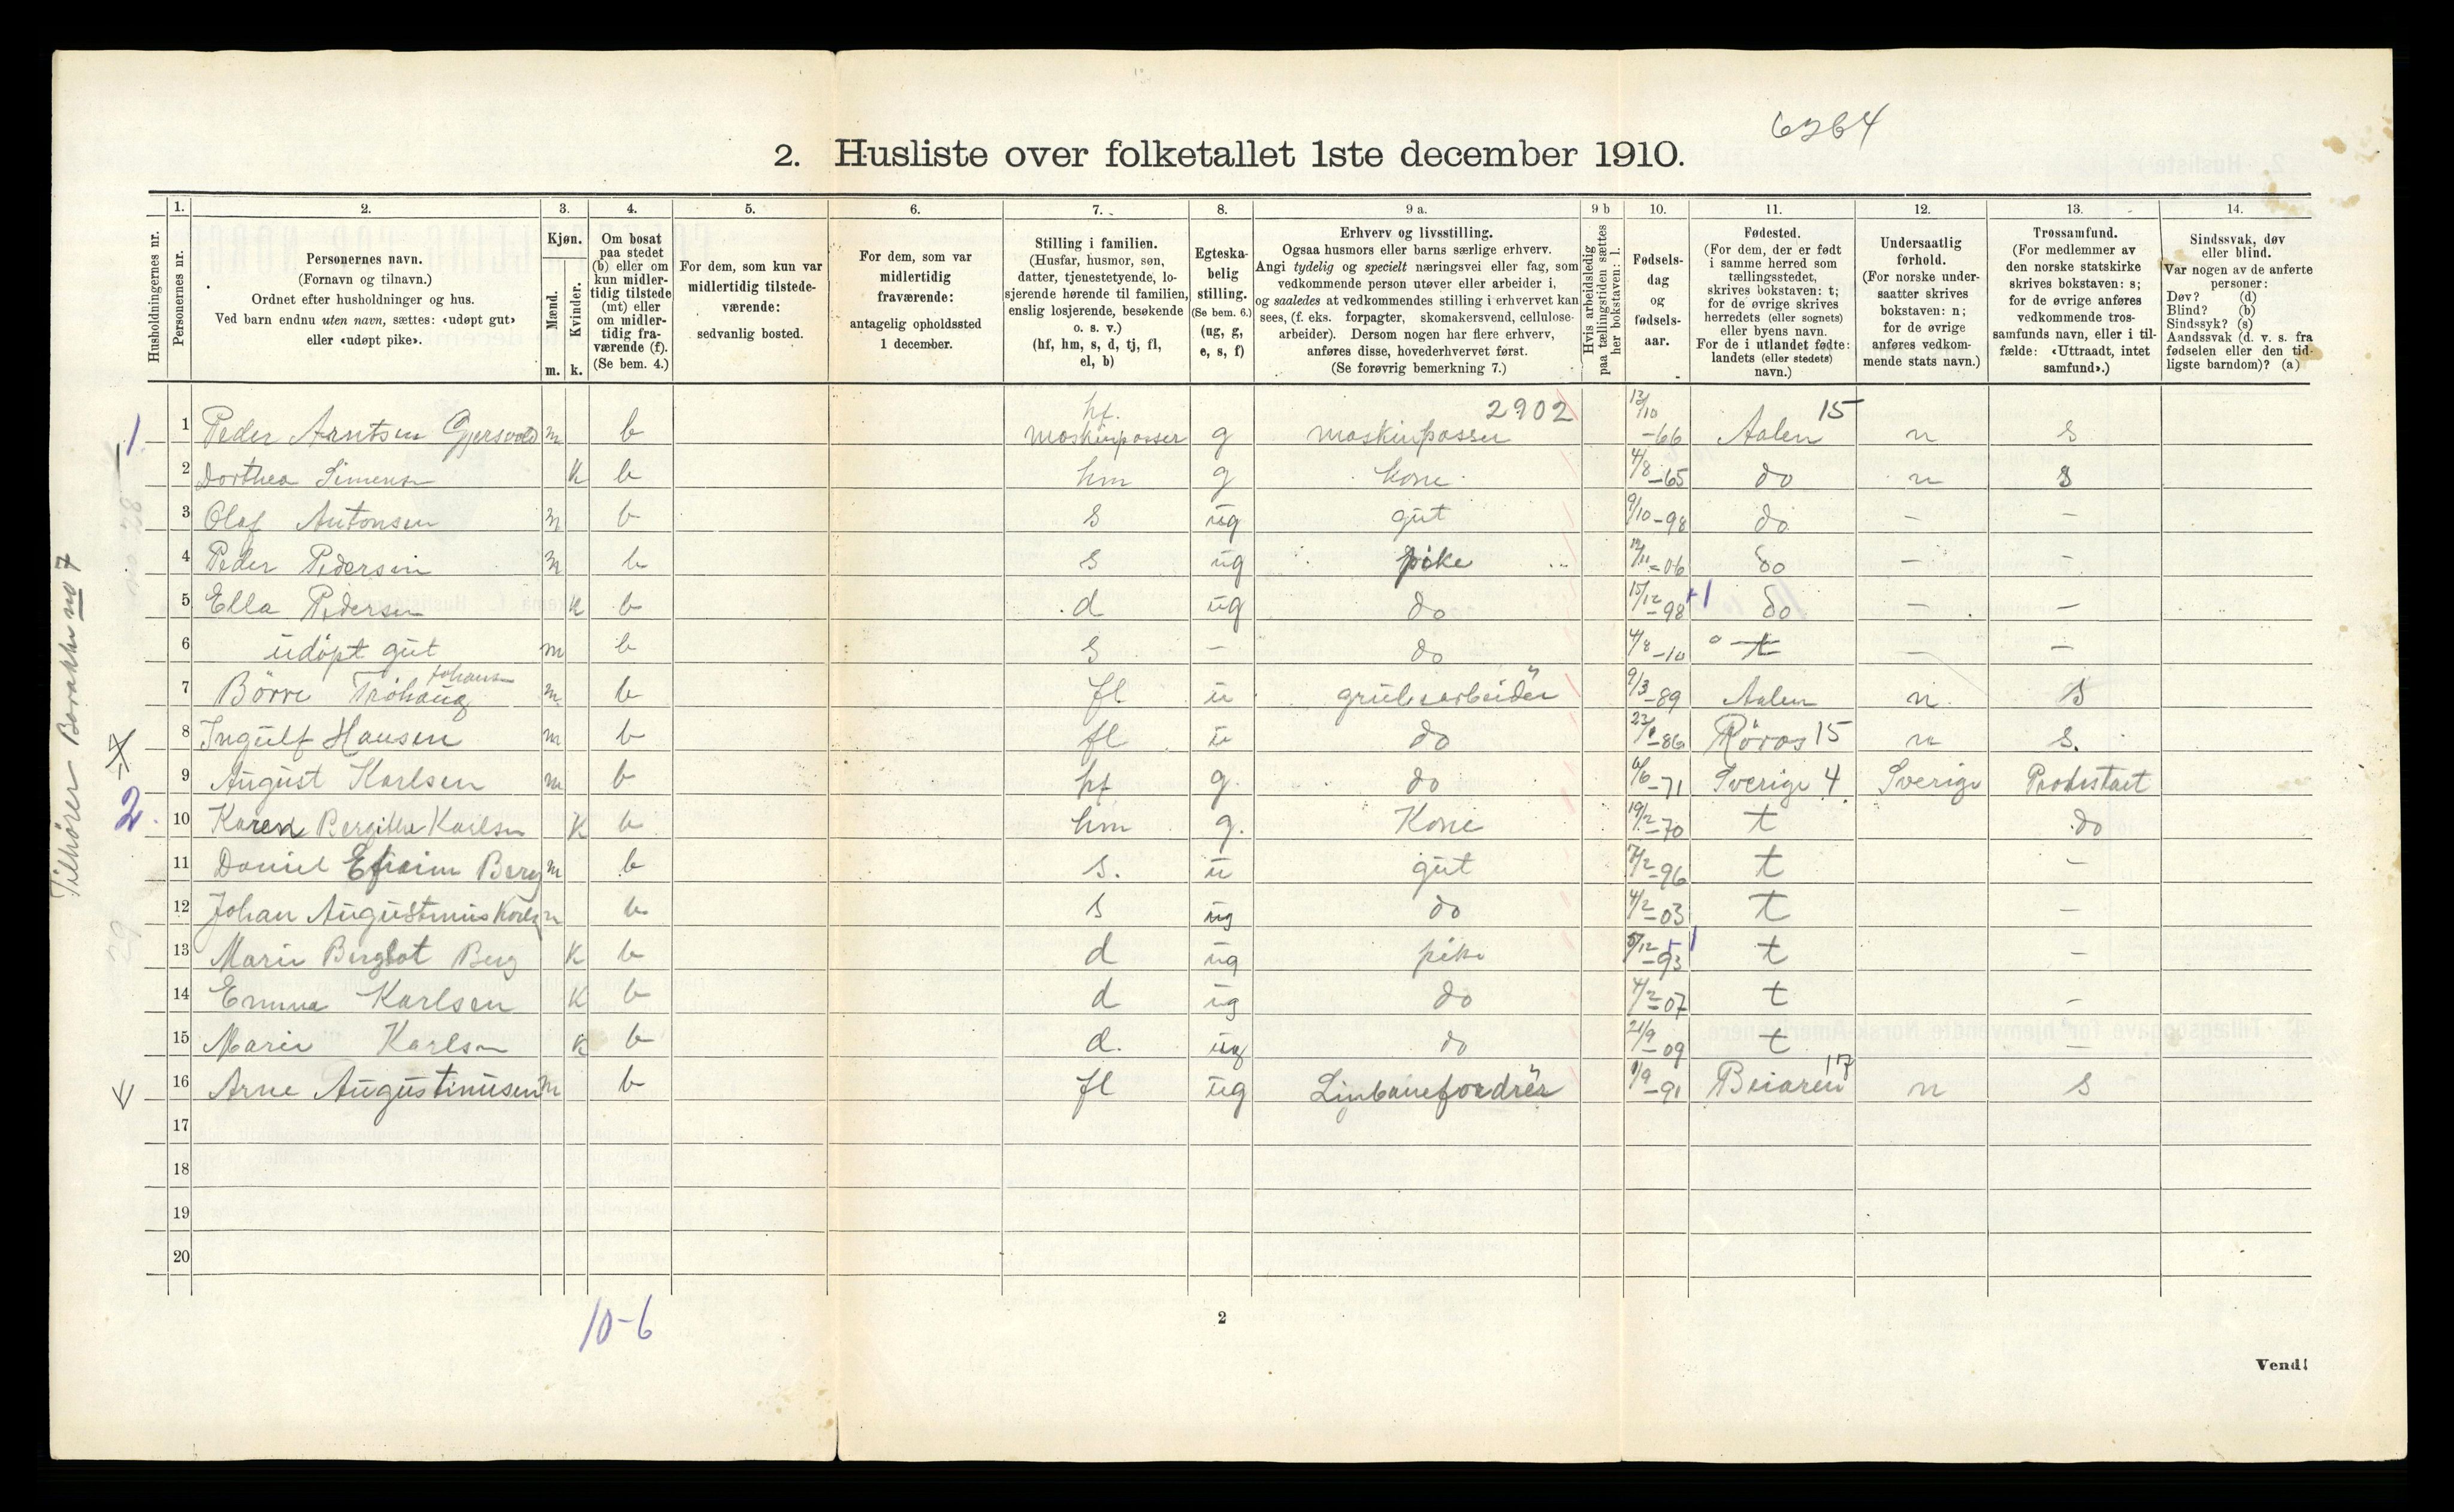 6264
2. Husliste over folketallet 1ste december 1910.
Husholdningernes nr.
1. Personernes nr.
2. Personernes navn.
(Fornavn og tilnavn.)
Ordnet efter husholdninger og hus.
Ved barn endnu uten navn, sættes: «udøpt gut»
eller «udøpt pike».
3. Kjøn.
Mænd. m.
Kvinder. k.
4. Om bosat
paa stedet
(b) eller om
kun midler-
tidig tilstede
(mt) eller
om midler-
tidig fra-
værende (f).
(Se bem. 4.)
5. For dem, som kun var
midlertidig tilstede-
værende:
sedvanlig bosted.
6. For dem, som var
midlertidig
fraværende:
antagelig opholdssted
1 december.
7. Stilling i familien.
(Husfar, husmor, søn,
datter, tjenestetyende, lo-
sjerende hørende til familien,
enslig losjerende, besøkende
o. s. v.)
(hf, hm, s, d, tj, fl,
el, b)
8. Egteska-
belig
stilling.
(Se bem. 6.)
(ug, g,
e, s, f)
9 a. Erhverv og livsstilling.
Ogsaa husmors eller barns særlige erhverv.
Angi tydelig og specielt næringsvei eller fag, som
vedkommende person utøver eller arbeider i,
og saaledes at vedkommendes stilling i erhvervet kan
sees, (f. eks. forpagter, skomakersvend, cellulose-
arbeider). Dersom nogen har flere erhverv,
anføres disse, hovederhvervet først.
(Se forøvrig bemerkning 7.)
9 b Hvis arbeidsledig
paa tællingstiden sættes
her bokstaven: l.
10. Fødsels-
dag
og
fødsels-
aar.
11. Fødested.
(For dem, der er født
i samme herred som
tællingsstedet,
skrives bokstaven: t;
for de øvrige skrives
herredets (eller sognets)
eller byens navn.
For de i utlandet fødte:
landets (eller stedets)
navn.)
12. Undersaatlig
forhold.
(For norske under-
saatter skrives
bokstaven: n;
for de øvrige
anføres vedkom-
mende stats navn.)
13. Trossamfund.
(For medlemmer av
den norske statskirke
skrives bokstaven: s;
for de øvrige anføres
vedkommende tros-
samfunds navn, eller i til-
fælde: «Uttraadt, intet
samfund».)
14. Sindssvak, døv
eller blind.
Var nogen av de anførte
personer:
Døv? (d)
Blind? (b)
Sindssyk? (s)
Aandssvak (d. v. s. fra
fødselen eller den tid-
ligste barndom)? (a)
Tilhører Barakke no 7
1. 1 Peder Arntsen Gjersvold m b hf. maskinpasser g maskinpasser 2902 12/10 -66 Aalen 15 n s
2 Dorthea Simensen K b hm g kone 4/8 -65 do n s
3 Olaf Antonsen m b s ug gut 9/10 -98 do - -
4 Peder Pedersen m b s ug pike 12/11 -06 do - -
5 Ella Pedersen K b d ug do 15/12 -98 +1 do - -
6 udøpt gut m b s - do 4/8 -10 t - -
7 Börre Tröhaug Johansen m b fl u grubearbeider 9/3 -89 Aalen n s
8 Ingulf Hansen m b fl u do -86 Röros 15 n s.
2. 9 August Karlsen m b hf g. do 6/6 -71 Sverige 4 Sverige Protestant
10 Karen Bergitte Karlsen K b hm g. Kone 19/2 -70 t do
11 Daniel Efraim Berg m b s. u gut 7/2 -96 t -
12 Johan Augustinus Karlsen m b s ug do 4/2 -03 t -
13 Marie Bergliot Berg K b d ug pike 5/12 -93 +1 t -
14 Emma Karlsen K b d ug do 4/2 -07 t -
15 Marie Karlsen K b d. ug do 21/9 -09 t -
16 Arne Augustinusen m b fl ug Linbanefordrer 1/9 -91 Beiaren 17 n s
17
18
19
20
10-6
2
Vend!